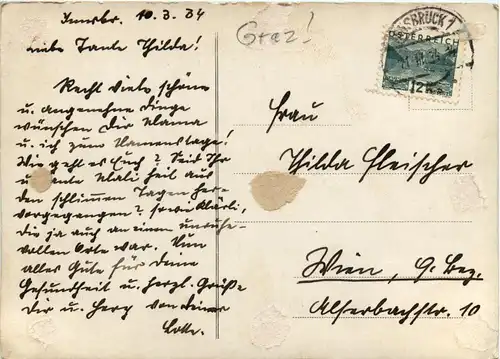 Innsbr. 10.3.34
Liebe Tante Thilda!
Recht viele schöne
u. angenehme Dinge
wünschen Dir Mama
u. ich zum Namenstage!
Wie geht es Euch? Seid Ihr
u. Tante Mali heil aus
den schlimmen Tagen her-
vorgegangen? sowie Klärli,
die ja auch an einem unruhe-
vollen Orte war. Nun
alles Gute für Deine
Gesundheit u. herzl. Grüße
Dir u. Herz von Deiner
Lotte.
Graz!
INNSBRUCK 1
ÖSTERREICH
12
Frau
Thilda Fleischer
Wien, 9. Bez.
Alserbachstr. 10